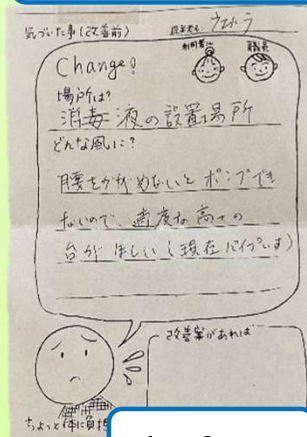 気づいた事(改善前)
提案者名 ウエハラ
Change!
利用者
職員
場所は?
消毒液の設置場所
どんな風に?
腰をかがめないとポンプでき
ないので、適度な高さの
台がほしい(現在パイプいす)
改善案があれば
ちょっと体に負担